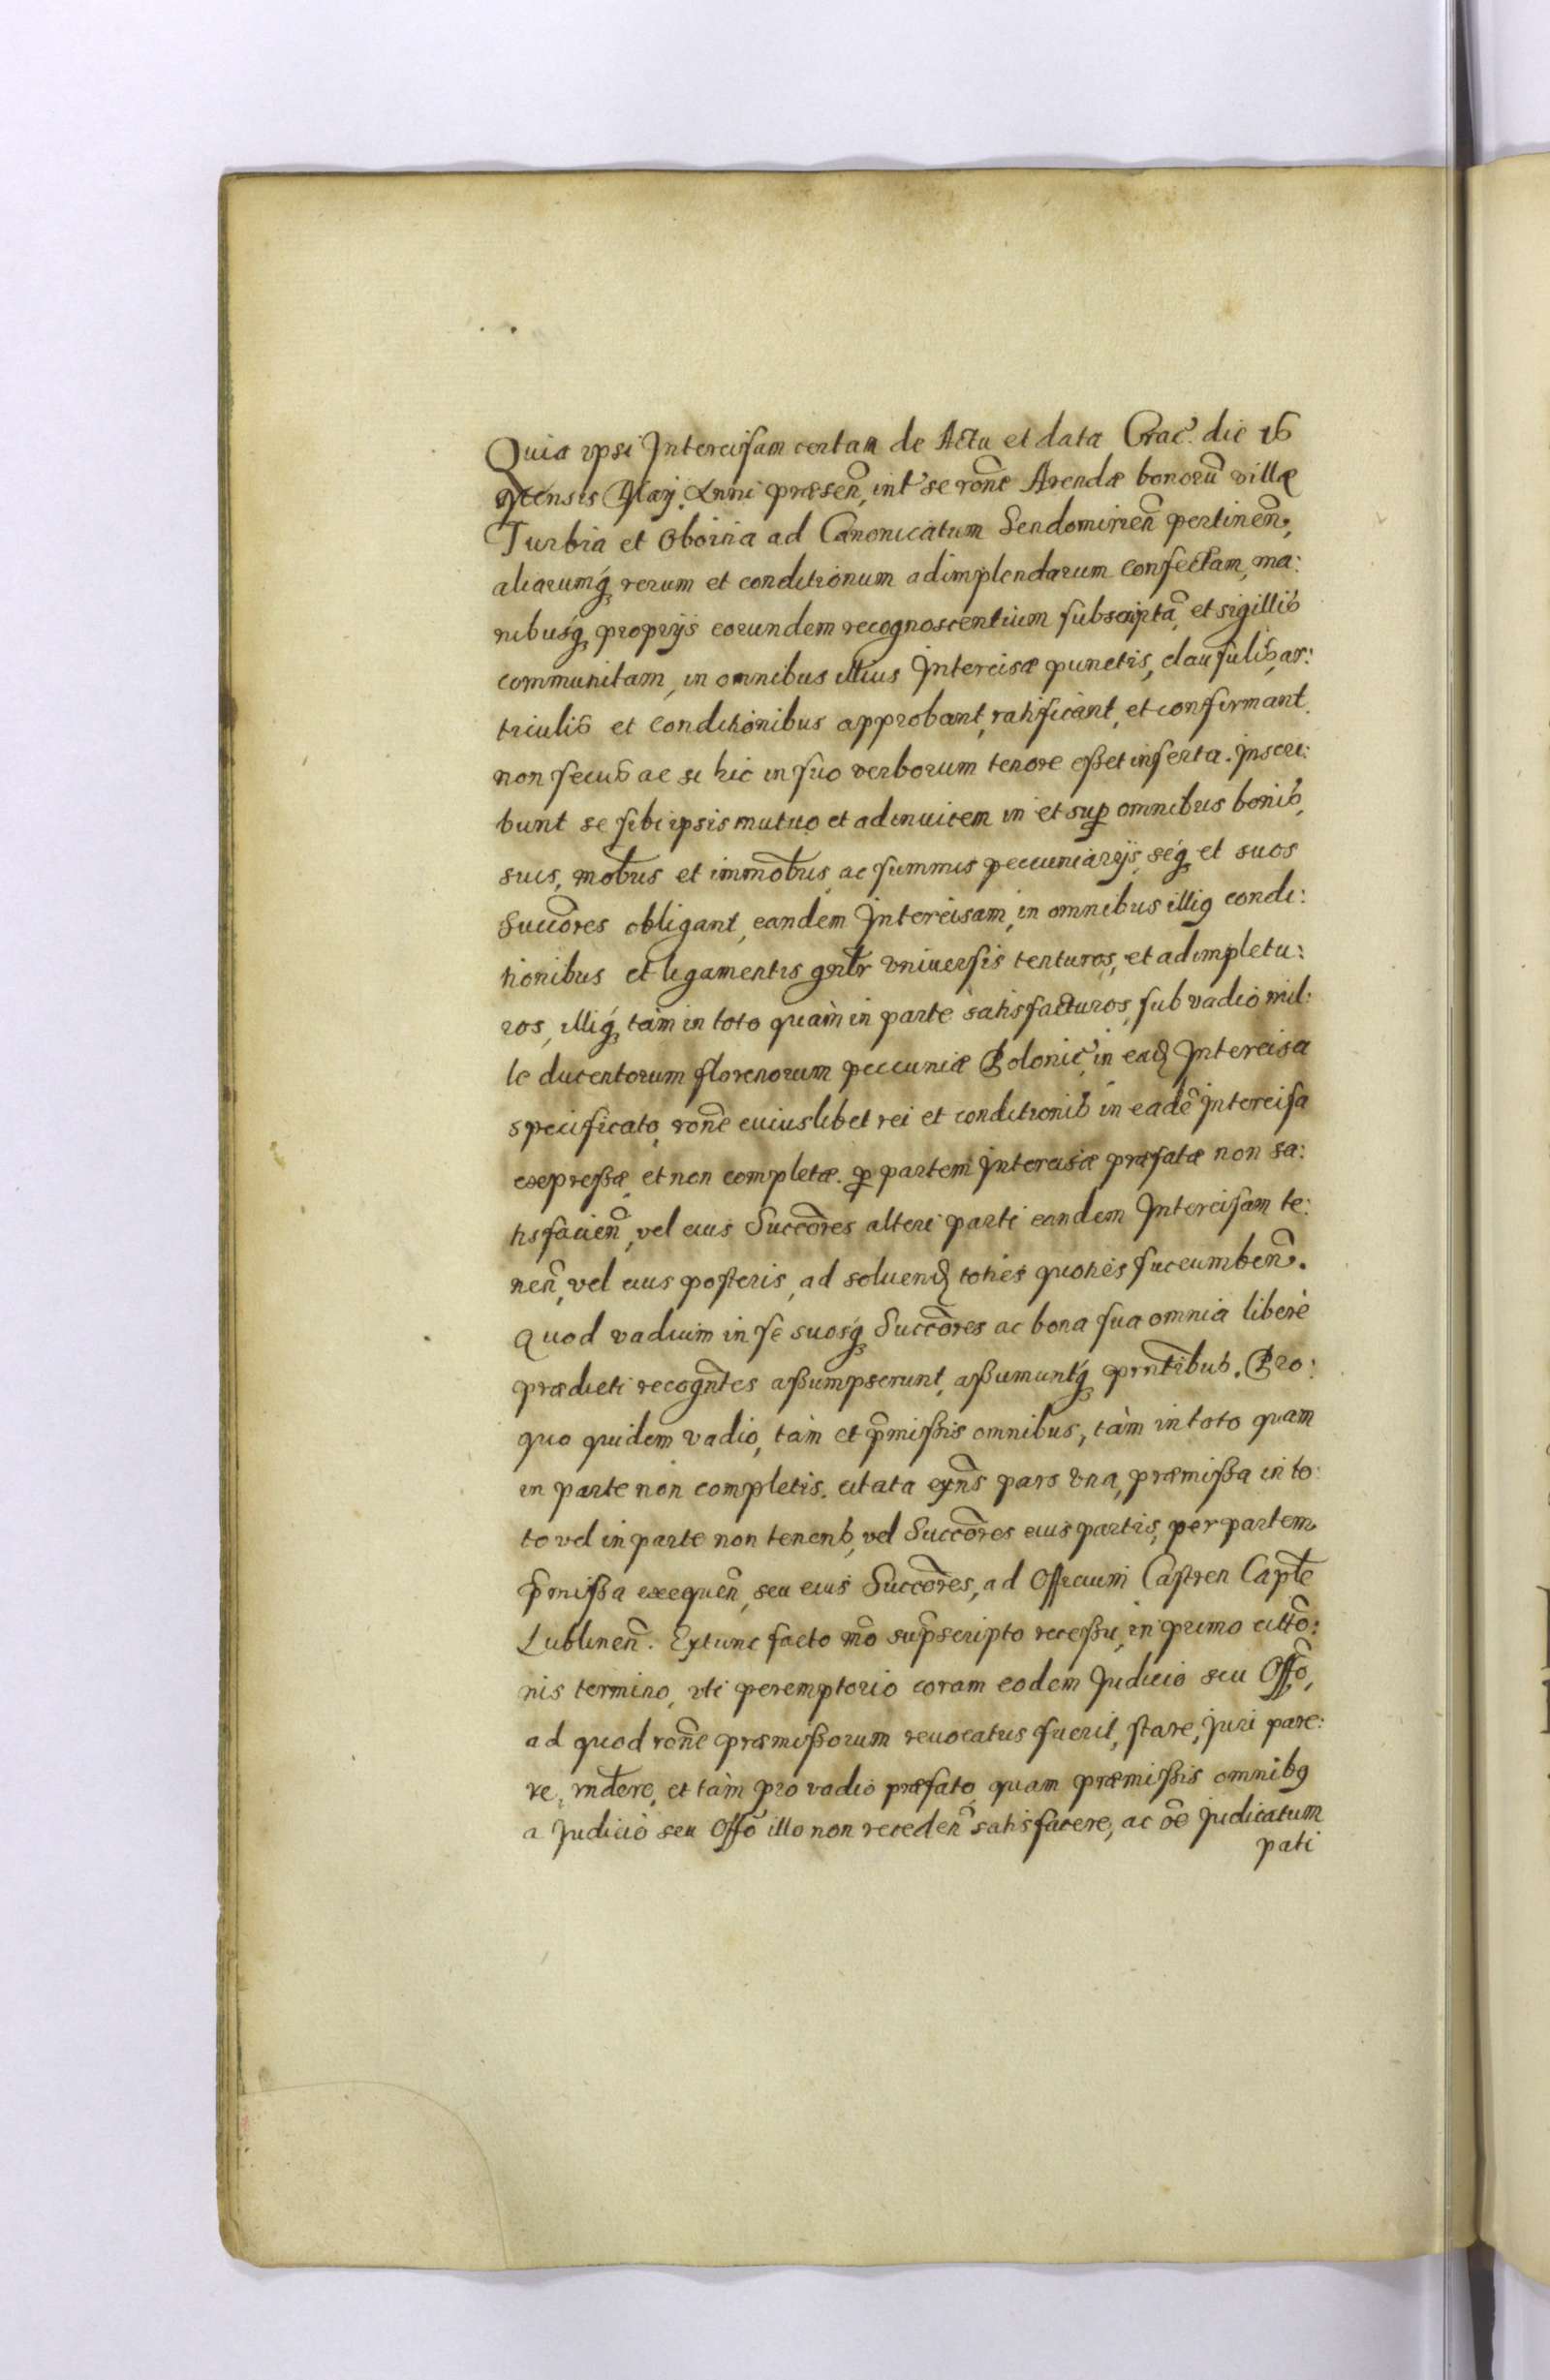 Quia ipsi Intercisam certam de Actu et data Crac̃. die 16
Mensis Maij. Anni præsen̄, int̃ se ron̄e Arendæ bonorū villæ
Turbia et Oboina ad Canonicatum Sendomirien̄ pertinen̄,
aliarumq́ꝫ rerum et conditionum adimplendarum confectam, ma:
nibusq́ꝫ proprijs eorundem recognoscentium subscriptā, et sigillis
communitam, in omnibus illius Intercisæ punctis, clausulis, ar:
triculis et conditionibus approbant, ratificant, et confirmant.
non secus ac si hic in suo verborum tenore eßet inserta. Inscri:
bunt se sibi ipsis mutuo et adinuicem in et suꝑ omnibus bonis,
suis, mob̄us et immob̄us, ac summis peccuniarijs, seq́ꝫ et suos
Succōres obligant, eandem Intercisam, in omnibus illiꝰ condi:
tionibus et ligamentis gnl̄r vniuersis tenturos, et adimpletu:
ros, illiq́ꝫ tàm in toto quàm in parte satisfacturos, sub vadio mil:
le ducentorum florenorum peccuniæ Polonic̃, in eaꝺ Intercisa
specificato, ron̄e cuiuslibet rei et conditionis in eadē Intercisa
expreßæ, et non completæ. ꝑ partem Intercisæ præfatæ non sa:
tisfacien̄, vel eius Succōres alteri parti eandem Intercisam te:
nen̄, vel eius posteris, ad soluenꝺ toties quoties succumben̄.
Quod vadium in se suosq́ꝫ Succōres ac bona sua omnia liberè
prædicti recogn̄tes aßumpserunt, aßumuntq́ꝫ prnt̄ibus. Pro:
quo quidem vadio, tàm et p̄mißis omnibus, tàm in toto quam
in parte non completis. citata exn̄s pars vna, præmißa in to:
to vel in parte non tenens, vel Succōres eius partis, per partem
p̄mißa exequen̄, seu eius Succōres, ad Officium Castren Capt̄e
Lublinen̄. Extunc facto mō sup̄scripto receßu, in primo citt̄o:
nis termino, vti peremptorio coram eodem Judicio seu Offō,
ad quod ron̄e præmißorum reuocatus fuerit, stare, juri pare:
re, rnd̄ere, et tàm pro vadio præfato, quam præmißis omnibꝰ
a Judicio seu Offō illo non receden̄ satisfacere, ac ōe judicatum
pati